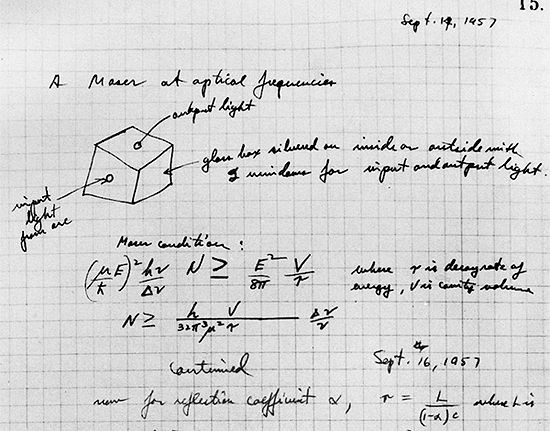 15.
Sept. 14, 1957
A Maser at optical frequencies
output light
glass box silvered on inside or outside with
2 windows for input and output light.
input
light
from arc
Maser condition:
(μE/ħ)² hν/Δν N ≥ E²/8π V/τ where τ is decay rate of
energy, V is cavity volume
N ≥ h/32π³μ² V/τ Δν/ν
Continued Sept. 16, 1957
now for reflection coefficient α, τ = L/(1-α)c where L is